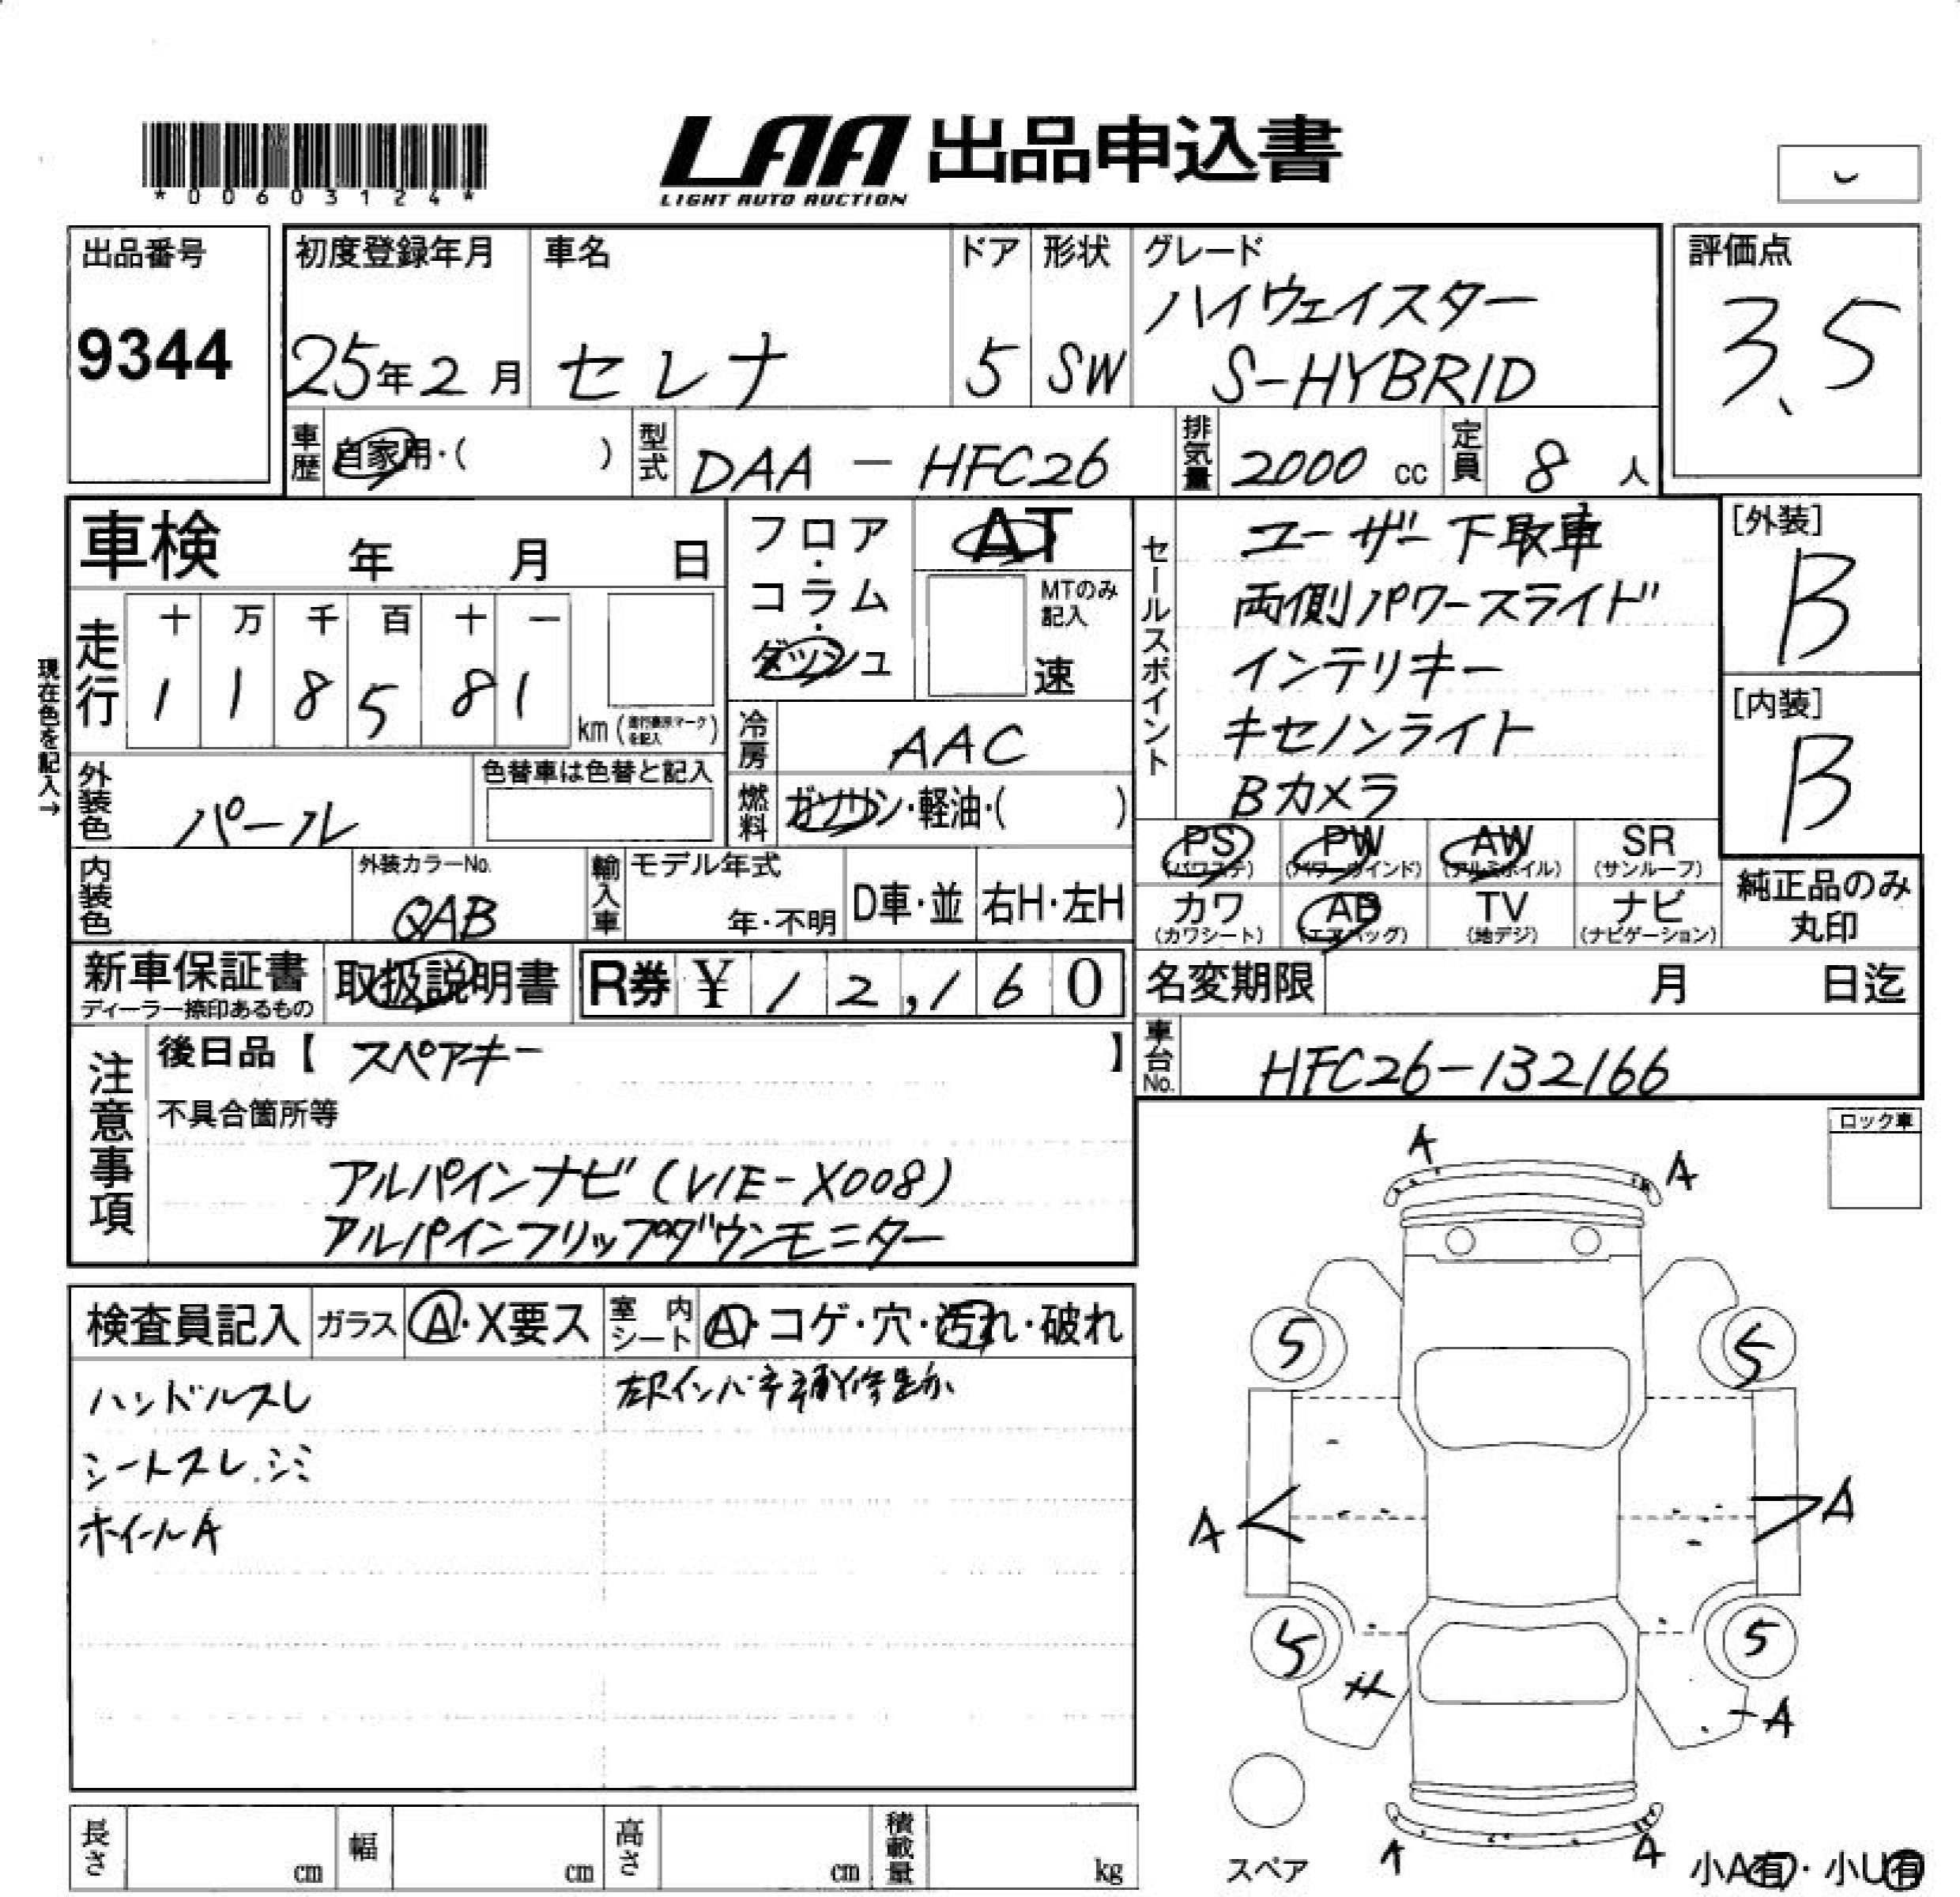 *00603124*
LAA 出品申込書
LIGHT AUTO AUCTION
出品番号
9344
初度登録年月
25年2月
車名
セレナ
ドア
5
形状
SW
グレード
ハイウェイスター
S-HYBRID
評価点
3.5
車歴
自家用・( )
型式
DAA - HFC26
排気量
2000 cc
定員
8 人
車検 年 月 日
フロア・コラム・ダッシュ
AT
MTのみ記入
速
セールスポイント
ユーザー下取車
両側パワースライド
インテリキー
キセノンライト
Bカメラ
[外装]
B
[内装]
B
現在色を記入→
走行
十 万 千 百 十 一
1 1 8 5 8 1
km (走行表示マークを記入)
冷房
AAC
外装色
パール
色替車は色替と記入
燃料
ガソリン・軽油・( )
PS (パワステ)
PW (パワーウインド)
AW (アルミホイル)
SR (サンルーフ)
カワ (カワシート)
AB (エアバッグ)
TV (地デジ)
ナビ (ナビゲーション)
純正品のみ丸印
内装色
外装カラーNo.
QAB
輸入車
モデル年式
年・不明
D車・並
右H・左H
新車保証書
ディーラー捺印あるもの
取扱説明書
R券 ¥ 12,160
名変期限 月 日迄
車台No.
HFC26-132166
注意事項
後日品【 スペアキー 】
不具合箇所等
アルパインナビ (VIE-X008)
アルパインフリップダウンモニター
ロック車
検査員記入
ガラス
A・X要ス
室内シート
A・コゲ・穴・汚れ・破れ
ハンドルスレ
シートスレ.シミ
ホイールA
A
A
5
5
A
A
5
5
A
A
A
スペア
小A有・小U有
長さ cm
幅 cm
高さ cm
積載量 kg